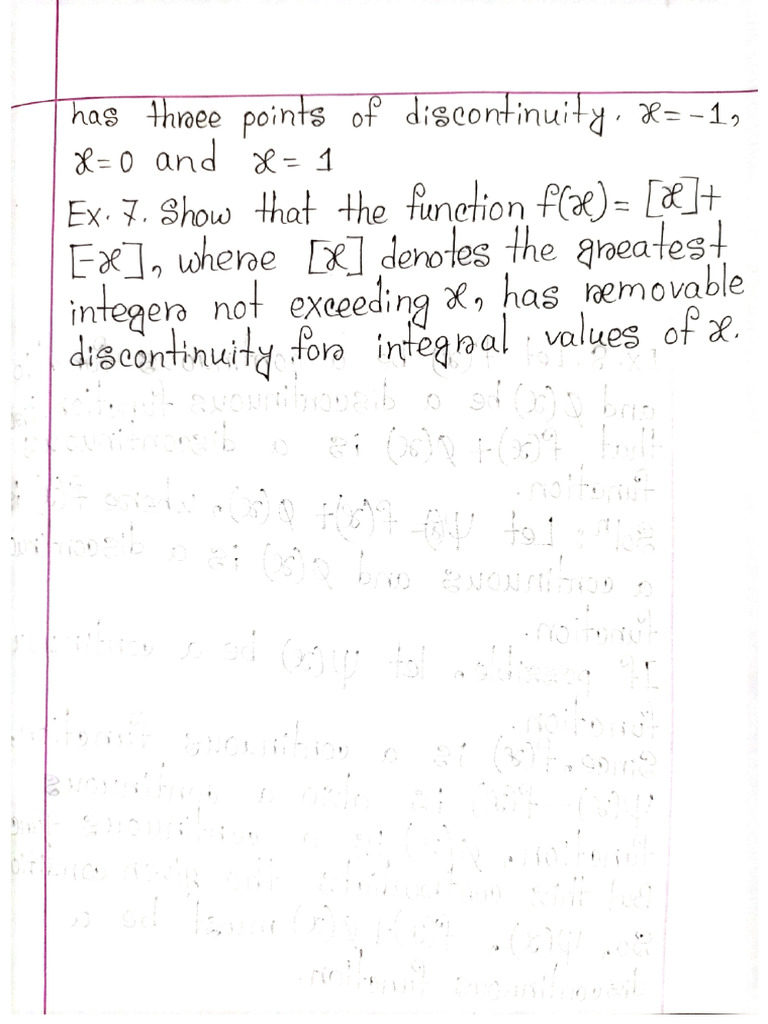 has three points of discontinuity. x=-1,
x=0 and x= 1
Ex. 7. Show that the function f(x)= [x]+
[-x], where [x] denotes the greatest
integer not exceeding x, has removable
discontinuity for integral values of x.